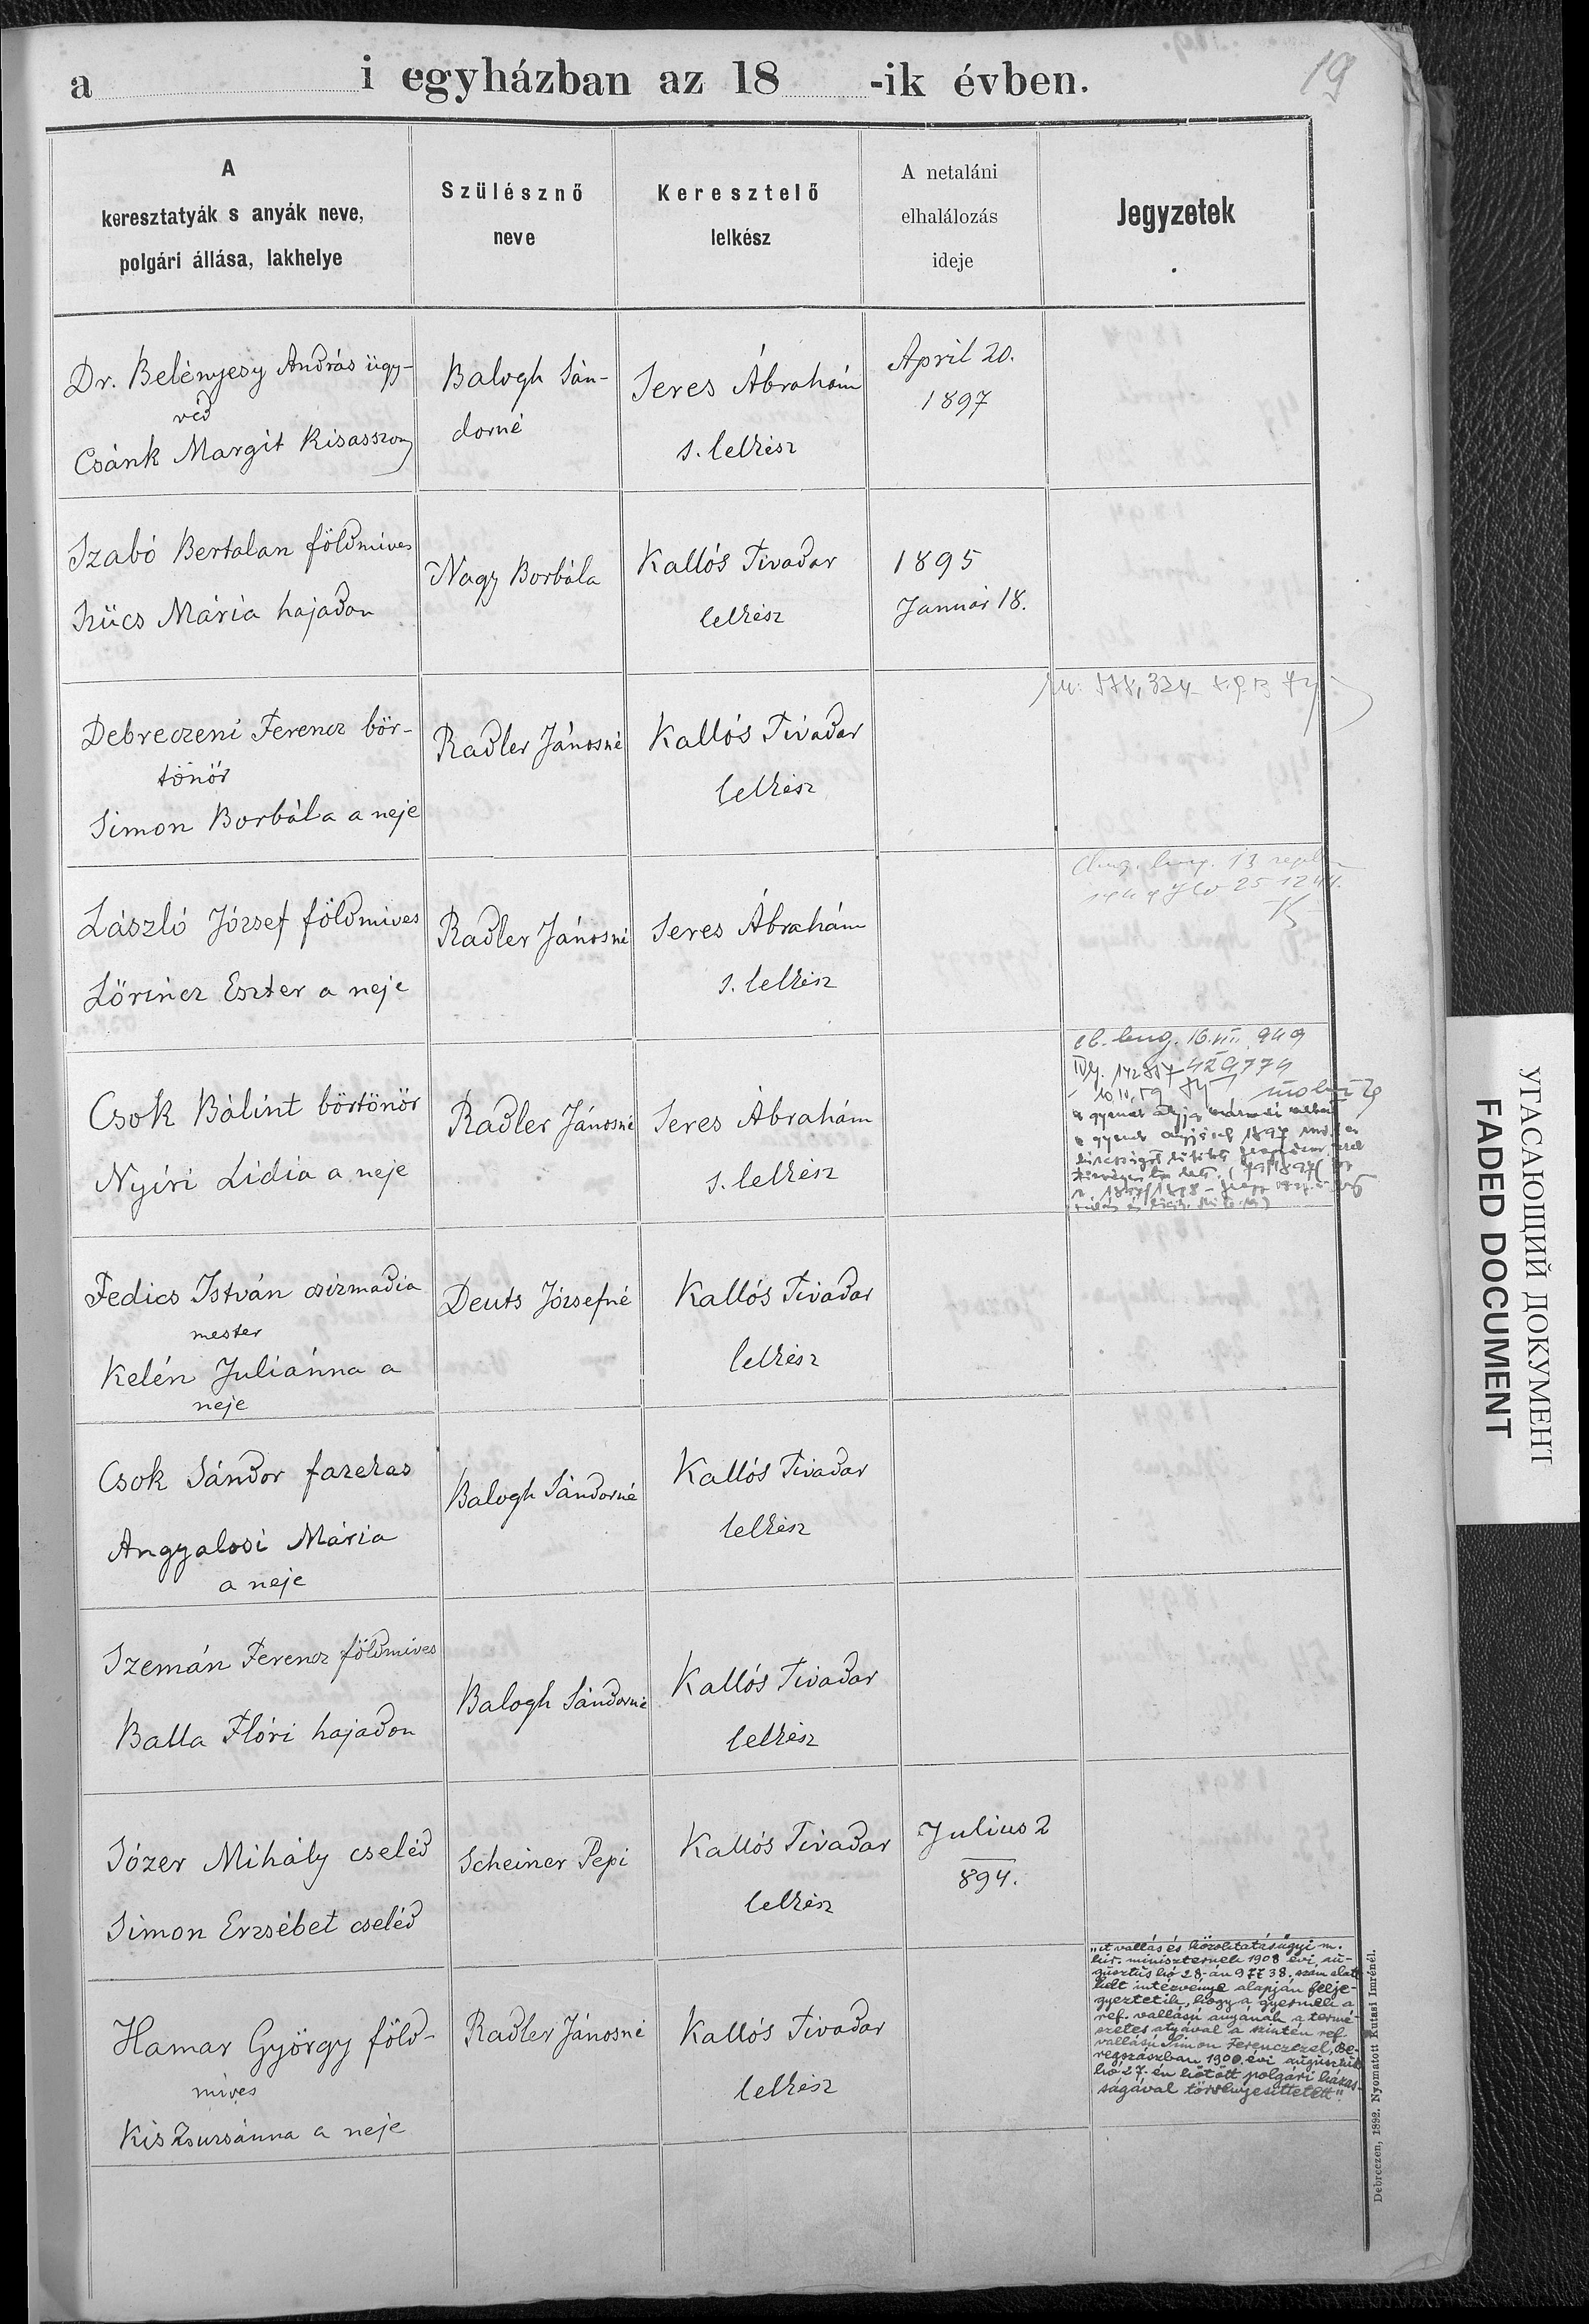 19
a i egyházban az 18 -ik évben.
A
keresztatyák s anyák neve,
polgári állása, lakhelye
Szülésznő
neve
Keresztelő
lelkész
A netaláni
elhalálozás
ideje
Jegyzetek
Dr. Belényesy András ügy-
véd
Csánk Margit kisasszony
Balogh Sán-
dorné
Seres Ábrahám
s. lelkész
April 20.
1897
Szabó Bertalan földmíves
Szücs Mária hajadon
Nagy Borbála
Kallós Tivadar
lelkész
1895
Január 18.
Debreczeni Ferencz bör-
tönőr
Simon Borbála a neje
Radler Jánosné
Kallós Tivadar
lelkész
László József földmíves
Lőrincz Eszter a neje
Radler Jánosné
Seres Ábrahám
s. lelkész
Csok Bálint börtönőr
Nyíri Lidia a neje
Radler Jánosné
Seres Ábrahám
s. lelkész
Fedics István csizmadia
mester
Kelén Juliánna a
neje
Deuts Józsefné
Kallós Tivadar
lelkész
Csok Sándor fazekas
Angyalosi Mária
a neje
Balogh Sándorné
Kallós Tivadar
lelkész
Szemán Ferencz földmíves
Balla Flóri hajadon
Balogh Sándorné
Kallós Tivadar
lelkész
Sózer Mihály cseléd
Simon Erzsébet cseléd
Scheiner Pepi
Kallós Tivadar
lelkész
Julius 2
894.
Hamar György föld-
míves
Kis Zsuzsánna a neje
Radler Jánosné
Kallós Tivadar
lelkész
"A vallás és közoktatásügyi m.
kir. miniszternek 1908 évi au-
gusztus hó 28.-án 97738. szám alatt
kelt intézvénye alapján felje-
gyeztetik, hogy a gyermek a
ref. vallású anyának a termé-
szetes atyával a szintén ref.
vallású Simon Ferenczczel, Be-
regszászban 1900. évi augusztus
hó 27.-én kötött polgári házas-
ságával törvényesíttetett".
Debreczen, 1892. Nyomatott Kutasi Imrénél.
УГАСАЮЩИЙ ДОКУМЕНТ
FADED DOCUMENT